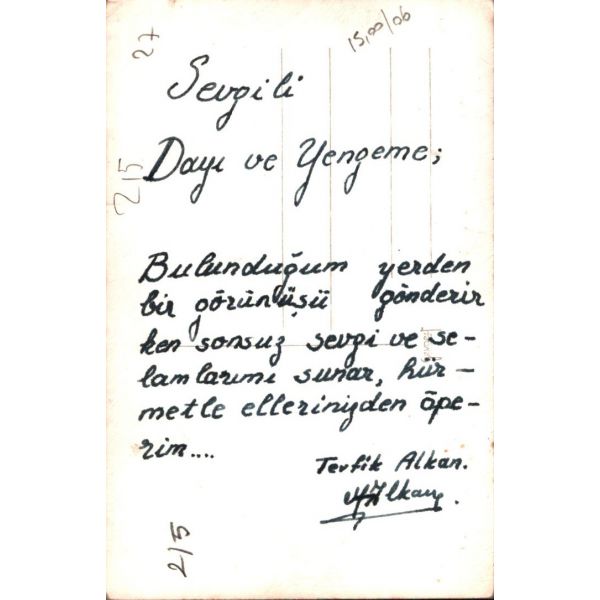 27
15,00/06
Sevgili
Dayı ve Yengeme;
2/5
Bulunduğum yerden
bir görünüşü gönderir
ken sonsuz sevgi ve se-
lamlarımı sunar, hür-
metle ellerinizden öpe-
rim....
Tevfik Alkan.
TAlkan.
2/5